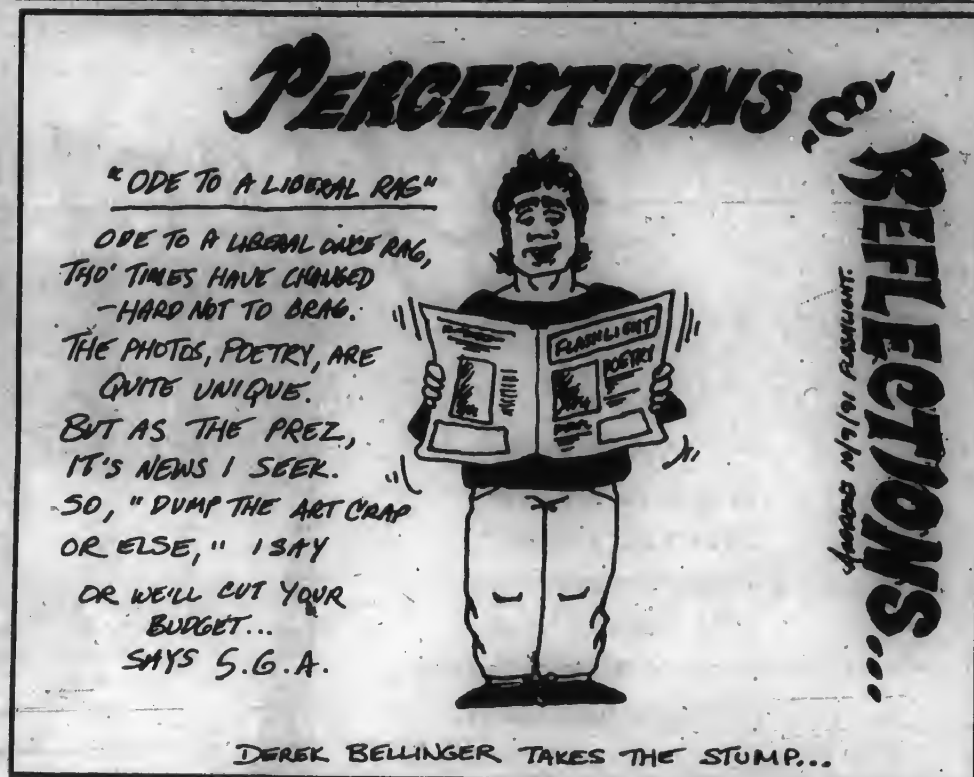 PERCEPTIONS &
REFLECTIONS...
"ODE TO A LIBERAL RAG"
ODE TO A LIBERAL ONCE RAG,
THO' TIMES HAVE CHANGED
-HARD NOT TO BRAG.
THE PHOTOS, POETRY, ARE
QUITE UNIQUE.
BUT AS THE PREZ,
IT'S NEWS I SEEK.
SO, "DUMP THE ART CRAP
OR ELSE," I SAY
OR WE'LL CUT YOUR
BUDGET...
SAYS S.G.A.
FLASHLIGHT
POETRY
10/9/91 FLASHLIGHT.
DEREK BELLINGER TAKES THE STUMP...